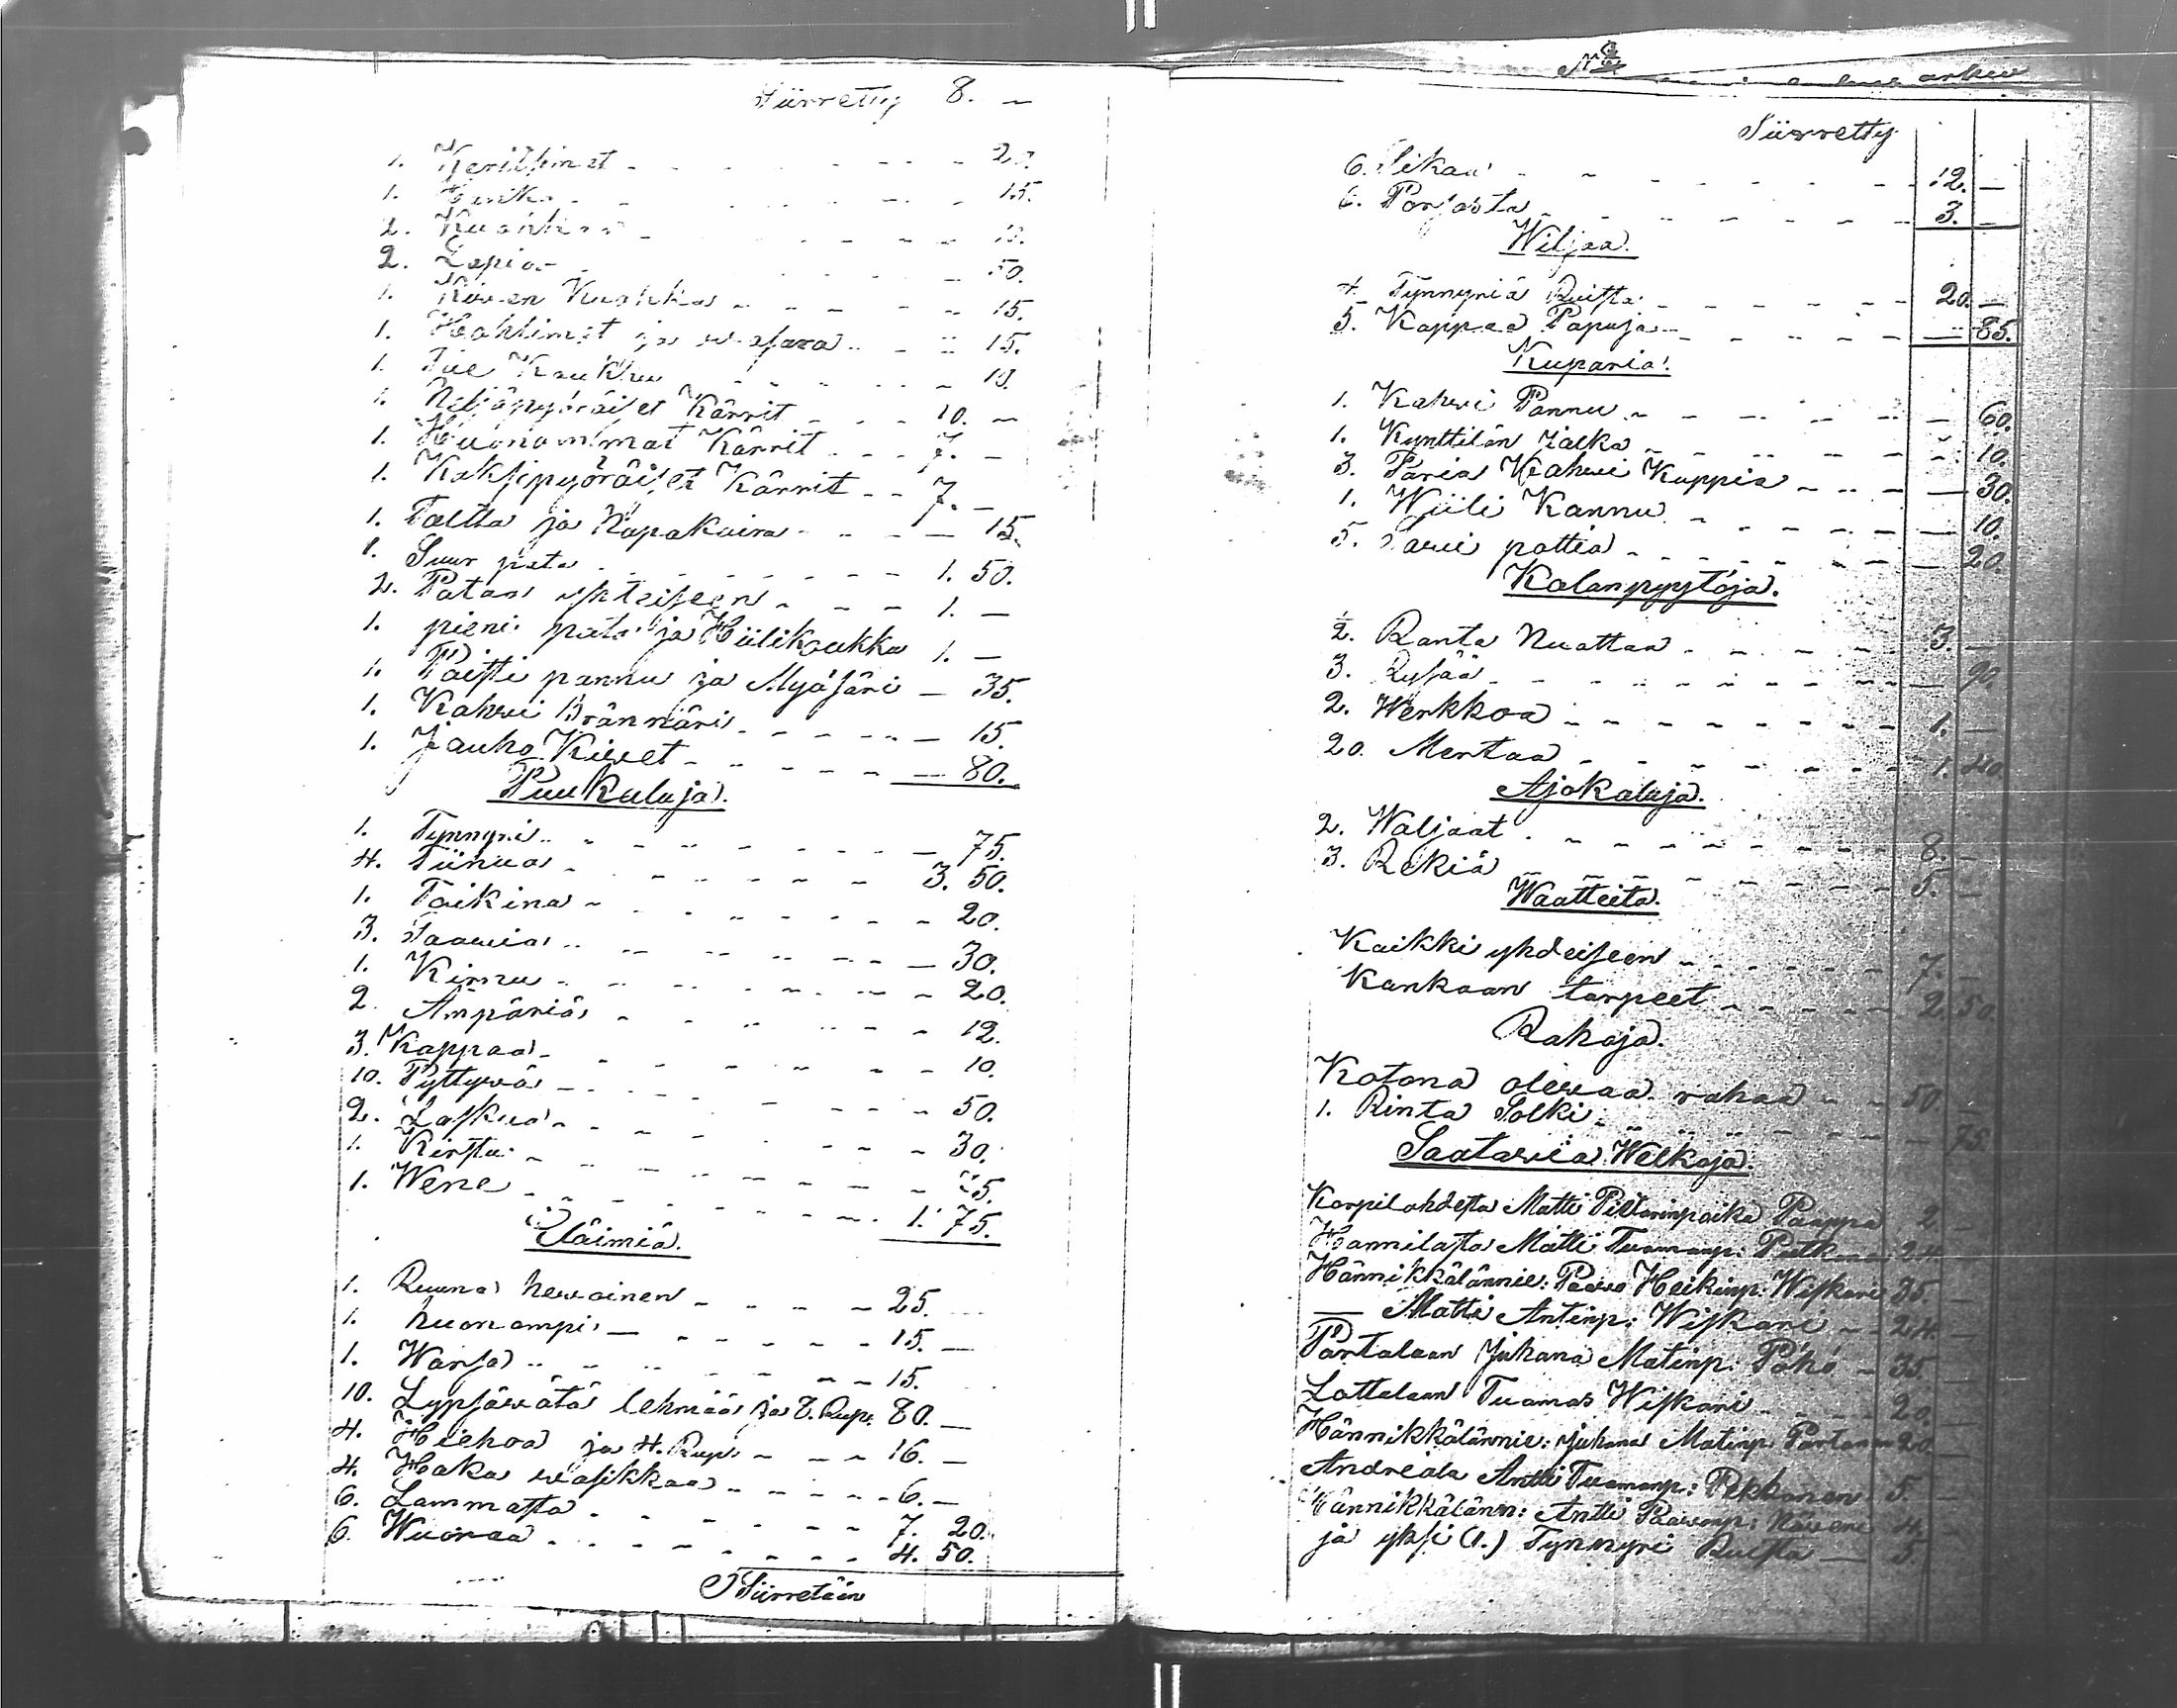 Siirretty 8. —
1. Kerittimet - - - 20.
1. - - - 15.
2. Kuokkaa - - - 10.
2. Lapioa - - - 50.
1. Kiven Kuokka - - - 15.
1. Hohtimet ja wasara - - 15.
1. Tie Kaukku - - - 10.
1. Neljäpyöräiset Kärrit - - - 10. —
1. Huonommat Kärrit - - - 7. —
1. Kaksipyöräiset Kärrit - - 7. —
1. Taltta ja Napakaira - - - — 15.
1. Suur pata - - - 1. 50.
2. Pataa yhteiseen - - - 1. —
1. pieni pata ja Hiilikoukku 1. —
1. Paisti pannu ja Myösäri — 35.
1. Kahvi Brännäri - - - — 15.
1. Jauho Kivet - - - — 80.
Puu Kaluja.
1. Tynnyri - - - — 75.
4. Tiinua - - - 3. 50.
1. Taikina - - - 20.
3. Saavia - - - — 30.
1. Kirnu - - - 20.
2. Ämpäriä - - - 12.
3. Kappaa - - - 10.
10. Pyttyvä - - - 50.
2. Laskua - - - 30.
1. Kirstu - - - 25.
1. Wene - - - 1. 75.
Eläimiä.
1. Ruuna hevoinen - - - 25.
1. huonompi — - - - 15. —
1. Warsa - - - 15.
10. Lypsäwätä lehmää ja 8. Rupl. 80. —
4. Hiehoa ja 4. Rupl. - - - 16. —
4. Haka wasikkaa - - - 6. —
6. Lammasta - - - 7. 20.
6. Wuonaa - - - 4. 50.
Siirretään
arkki
Siirretty
6. Sikaa - - - 12. —
6. Porsasta - - - 3. —
Wiljaa.
4. Tynnyriä Ruista - - - 20. —
5. Kappaa Papuja - - - — 85.
Kuparia.
1. Kahvi Pannu - - - — 60.
1. Kynttilän Jalka - - - 10.
3. Paria Kahvi Kuppia - - - — 30.
1. Wiili Kannu - - - 10.
5. Savi pottia - - - — 20.
Kalanpyytöjä.
½. Ranta Nuottaa - - - 3. —
3. Rysää - - - — 90.
2. Werkkoa - - - 1. —
20. Mertaa - - - 1. 40.
Ajokaluja.
2. Waljaat - - - 8. —
3. Rekiä - - - 5. —
Waatteita.
Kaikki yhdeiseen - - - 7. —
Kankaan tarpeet - - - 2. 50.
Rahoja.
Kotona olewaa rahaa - - 50.
1. Rinta Solki - - - — 75.
Saatawia Welkoja.
Korpilahdesta Matti Pietarinpoika Paappa 2 —
Hannilasta Matti Tuomanp: 24
Hännikkälännie: Paavo Heikinp: Wiskari 35. —
— Matti Antinp: Wiskari - - 24. —
Partalaan Juhana Matinp: Pöhö — 35. —
Lottalaan Tuomas Wiskari - - - 20. —
Hännikkälännie: Juhana Matinp: Partanen 20. —
Andreala Antti Tuomanp: Pekkanen 5. —
Hännikkälänn: Antti Paavonp: 4. —
ja yksi (1.) Tynnyri Ruista — 5